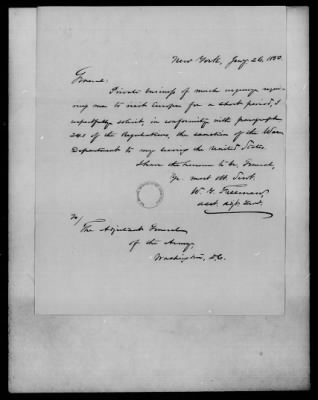 New York, Jany 26, 1850.
General:
Private business of much urgency requir-
ing me to visit Europe for a short period, I
respectfully solicit, in conformity with paragraph
241 of the Regulations, the sanction of the War
Department to my leaving the United States.
I have the honor to be, General,
Yr. most obt. Servt.
W. G. Freeman,
Asst. Adjt. Genl.
To/
The Adjutant General
of the Army,
Washington, D.C.